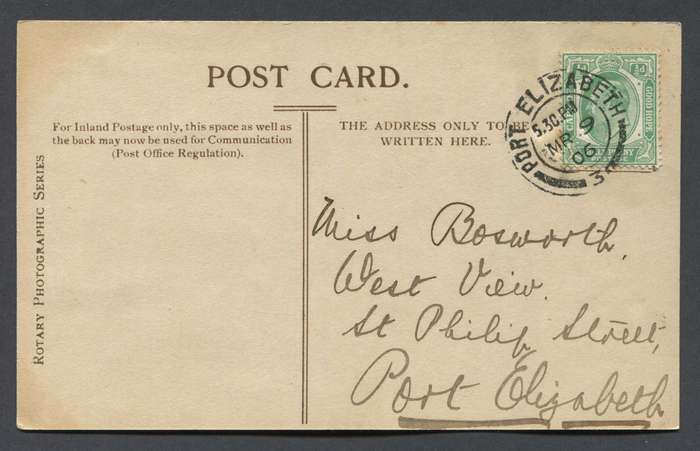 POST CARD.
For Inland Postage only, this space as well as
the back may now be used for Communication
(Post Office Regulation).
THE ADDRESS ONLY TO BE
WRITTEN HERE.
ROTARY PHOTOGRAPHIC SERIES
PORT ELIZABETH
5.30 PM
MR 9
06
3
½d ½d
GOOD HOPE
Miss Bosworth,
West View.
St Philip Street,
Port Elizabeth